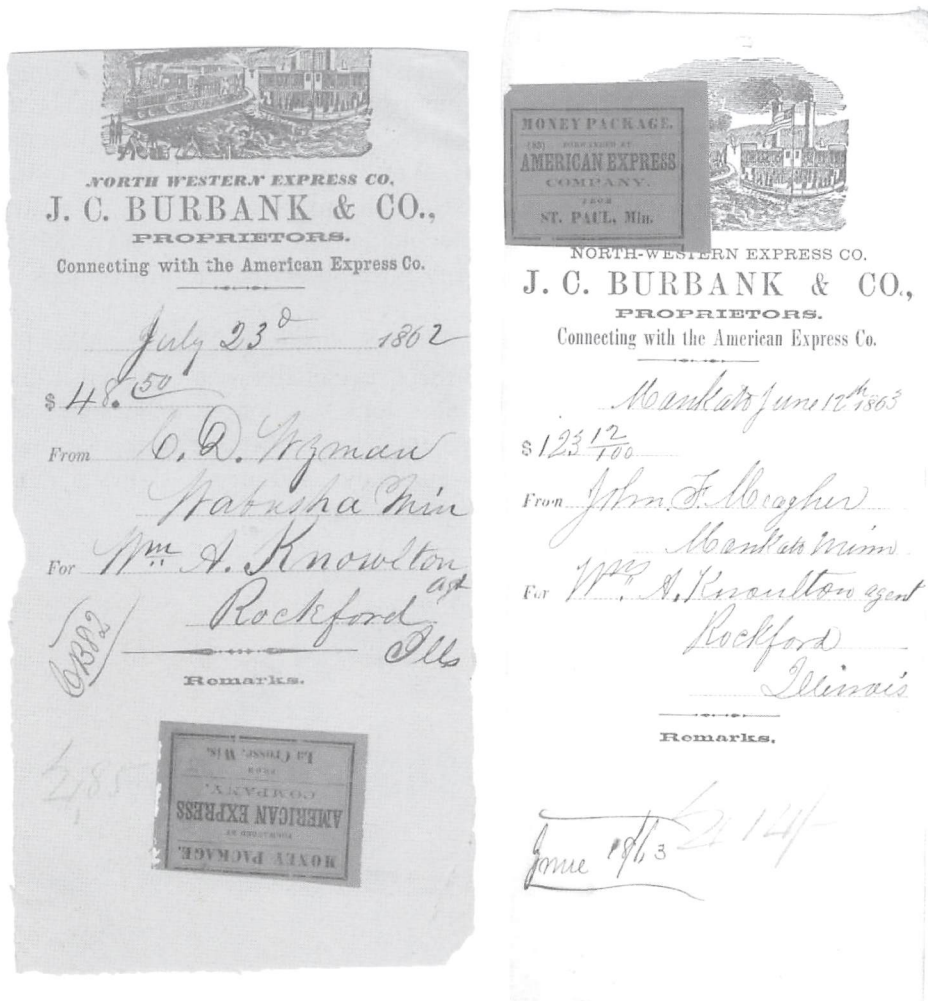 NORTH WESTERN EXPRESS CO.
J. C. BURBANK & CO.,
PROPRIETORS.
Connecting with the American Express Co.
July 23d 1862
$ 48.50
From C. D. Wyman
Wabasha Min
For Wm A. Knowlton
agt
Rockford
Ills
Remarks.
MONEY PACKAGE.
FORWARDED BY
AMERICAN EXPRESS
COMPANY.
FROM
La Crosse, Wis.
MONEY PACKAGE.
FORWARDED BY
AMERICAN EXPRESS
COMPANY.
FROM
ST. PAUL, Min.
NORTH-WESTERN EXPRESS CO.
J. C. BURBANK & CO.,
PROPRIETORS.
Connecting with the American Express Co.
Mankato June 12th 1863
$ 123 12/100
From John F. Meagher
Mankato Minn
For Wm. A. Knoulton agent
Rockford
Illinois
Remarks.
June